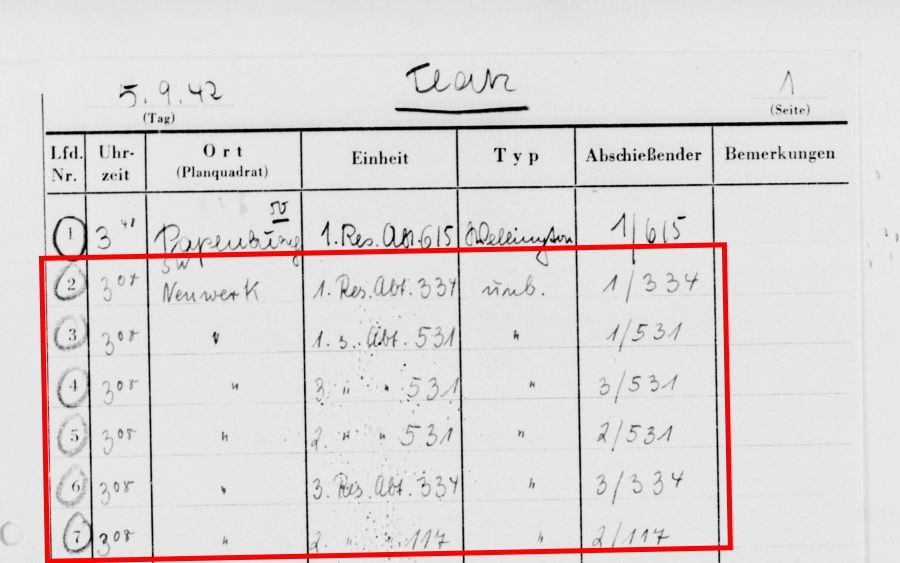 5.9.42 Flak 1
(Tag) (Seite)
Lfd. Nr. Uhr-zeit Ort (Planquadrat) Einheit Typ Abschießender Bemerkungen
SO
1 3 48 Papenburg 1. Res. Abt. 615 Wellington 1/615
SW
2 3 08 Neuwerk 1. Res. Abt. 334 unb. 1/334
3 3 08 " 1. s. Abt. 531 " 1/531
4 3 08 " 3. " " 531 " 3/531
5 3 08 " 2. " " 531 " 2/531
6 3 08 " 3. Res. Abt. 334 " 3/334
7 3 08 " 2. " " 117 " 2/117